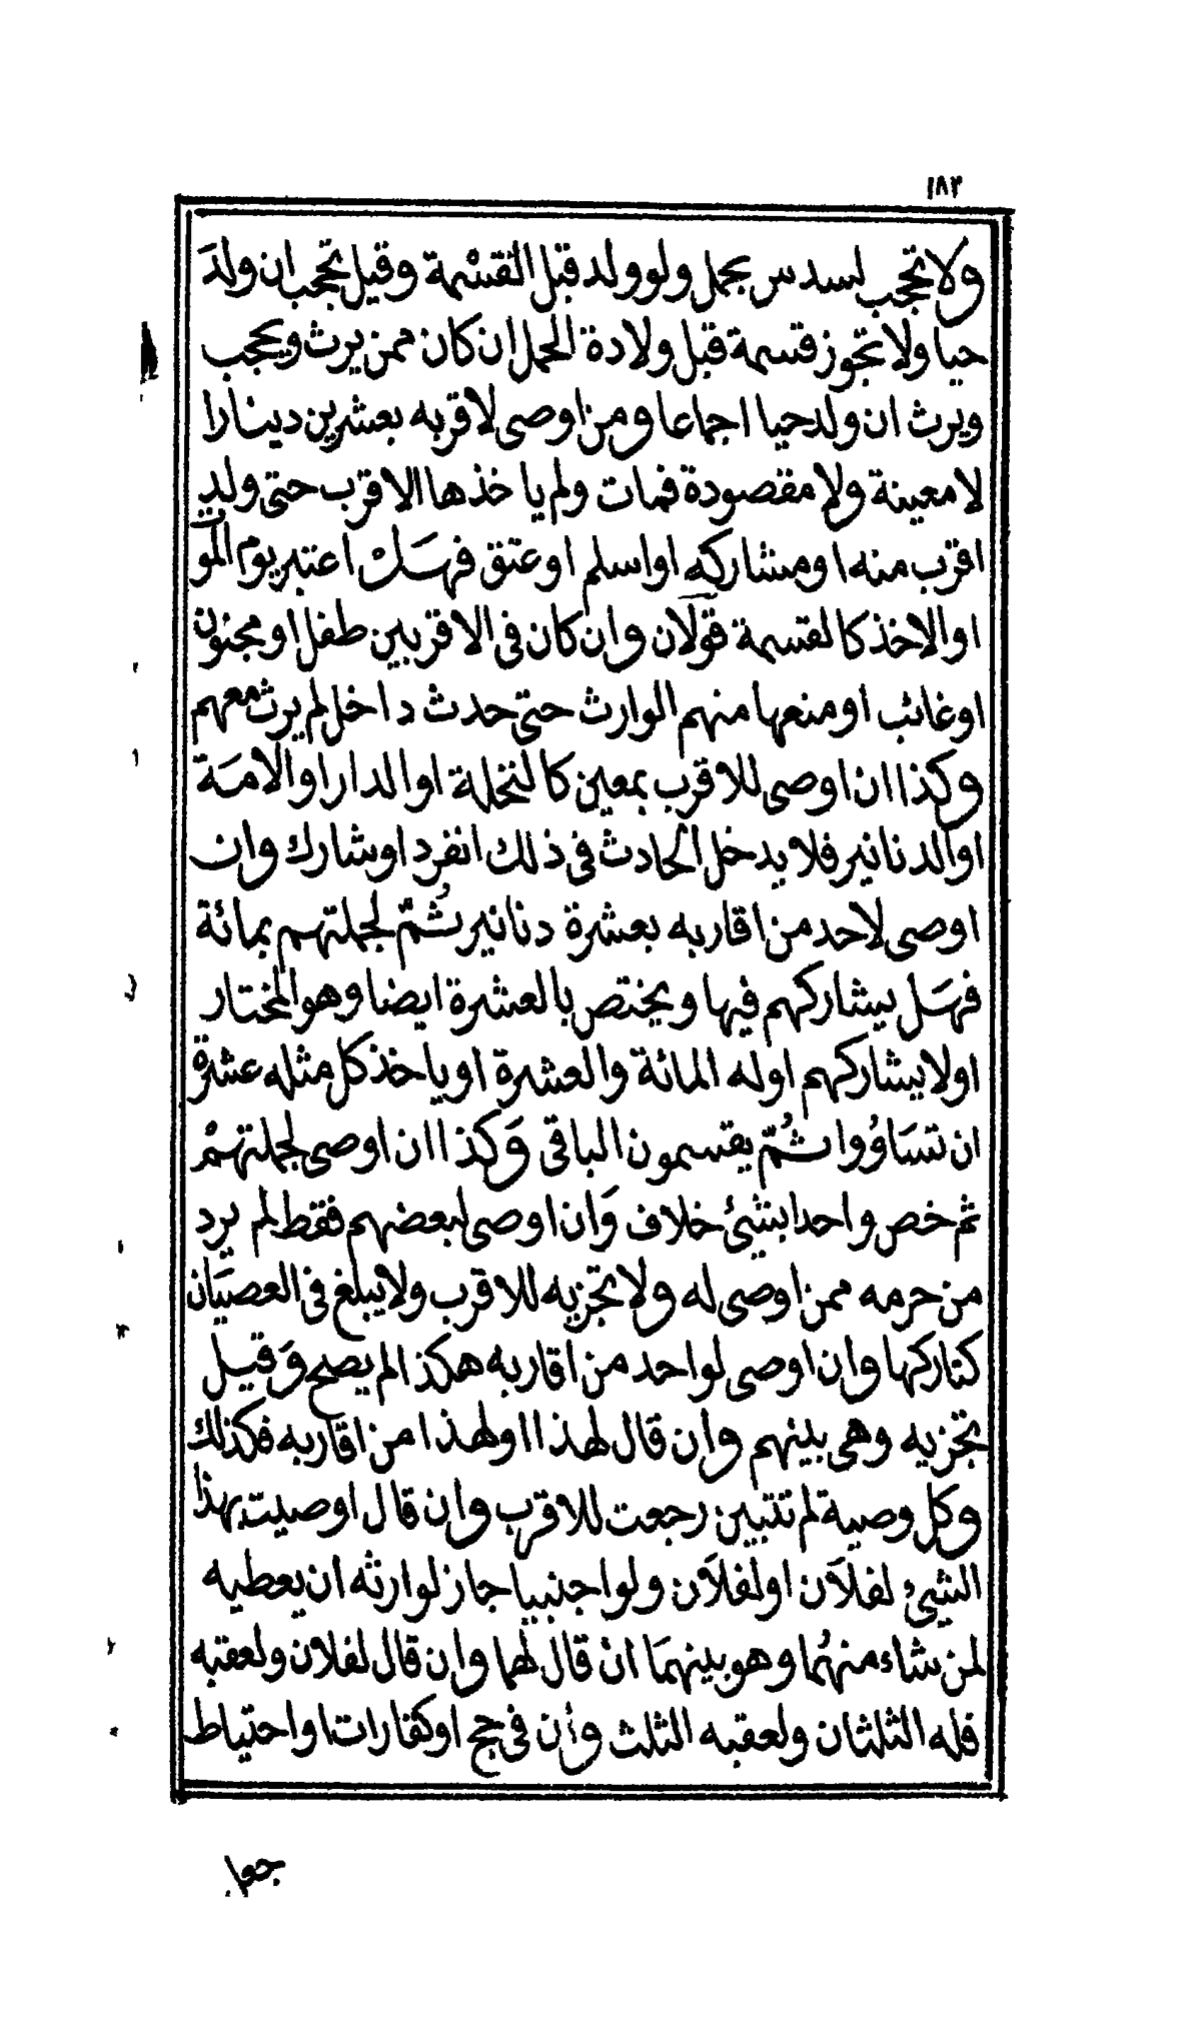 ١٨٣
ولا تحجب لسدس بحمل ولو ولد قبل القسْمة وقيل تحجب ان ولدَ
حيا ولا تجوز قسمة قبل ولادة الحمل ان كان ممن يرث ويحجب
ويرث ان ولد حيا اجماعا ومن اوصى لاقربه بعشرين دينارا
لا معينة ولا مقصودة فمات ولم ياخذها الاقرب حتى ولد
اقرب منه او مشاركه او اسلم او عتق فهَل اعتبر يوم الموت
او الاخذ كالقسمة قولان وان كان فى الاقربين طفل او مجنون
او غائب او منعها منهم الوارث حتى حدث داخل لم يرث معهم
وكذا ان اوصى للاقرب بمعين كالنخلة او الدار او الامَة
او الدنانير فلا يدخل الحادث فى ذلك انفرد او شارك وان
اوصى لاحد من اقاربه بعشرة دنانير ثُمّ لجملتهم بمائة
فهَل يشاركهم فيها ويختص بالعشرة ايضا وهو المختار
او لا يشاركهم او له المائة والعشرة او ياخذ كل مثله عشرة
ان تسَاوُوا ثُمّ يقسمون الباقى وَكذا ان اوصى لجملتهمْ
ثم خص واحدا بشئ خلاف وَان اوصى لبعضهم فقط لم يرد
من حرمه ممن اوصى له ولا تجزيه للاقرب ولا يبلغ فى العصيَان
كتاركها وان اوصى لواحد من اقاربه هكذا لم يصح وَقيل
تجزيه وهى بينهم وان قال لهذا او لهذا من اقاربه فكذلك
وكل وصية لم تتبين رجعت للاقرب وان قال اوصيت بهذا
الشئ لفلَان او لفلَان ولو اجنبيا جاز لوارثه ان يعطيه
لمن شاء منهُما وهو بينهمَا انْ قال لهما وان قال لفلان ولعقبه
فله الثلثان ولعقبه الثلث وأن فى حج او كفارات او احتياط